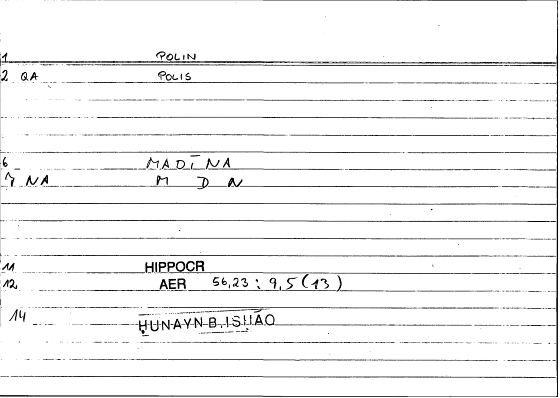 1 POLIN
2 QA POLIS
6 MADĪNA
7 NA M D N
11 HIPPOCR
12 AER 56,23 : 9,5 (13)
14 ḤUNAYN B. ISḤĀQ